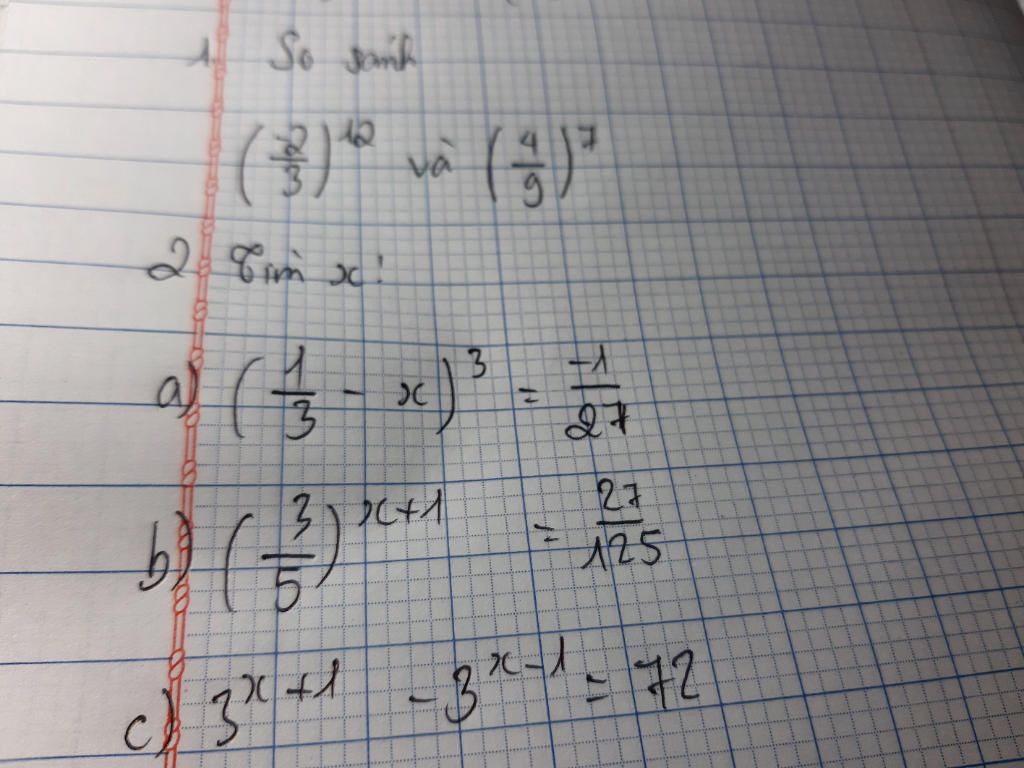 1. So sánh
(-2/3)^12 và (4/9)^7
2. Tìm x:
a) (1/3 - x)^3 = -1/27
b) (3/5)^x+1 = 27/125
c) 3^x+1 - 3^x-1 = 72